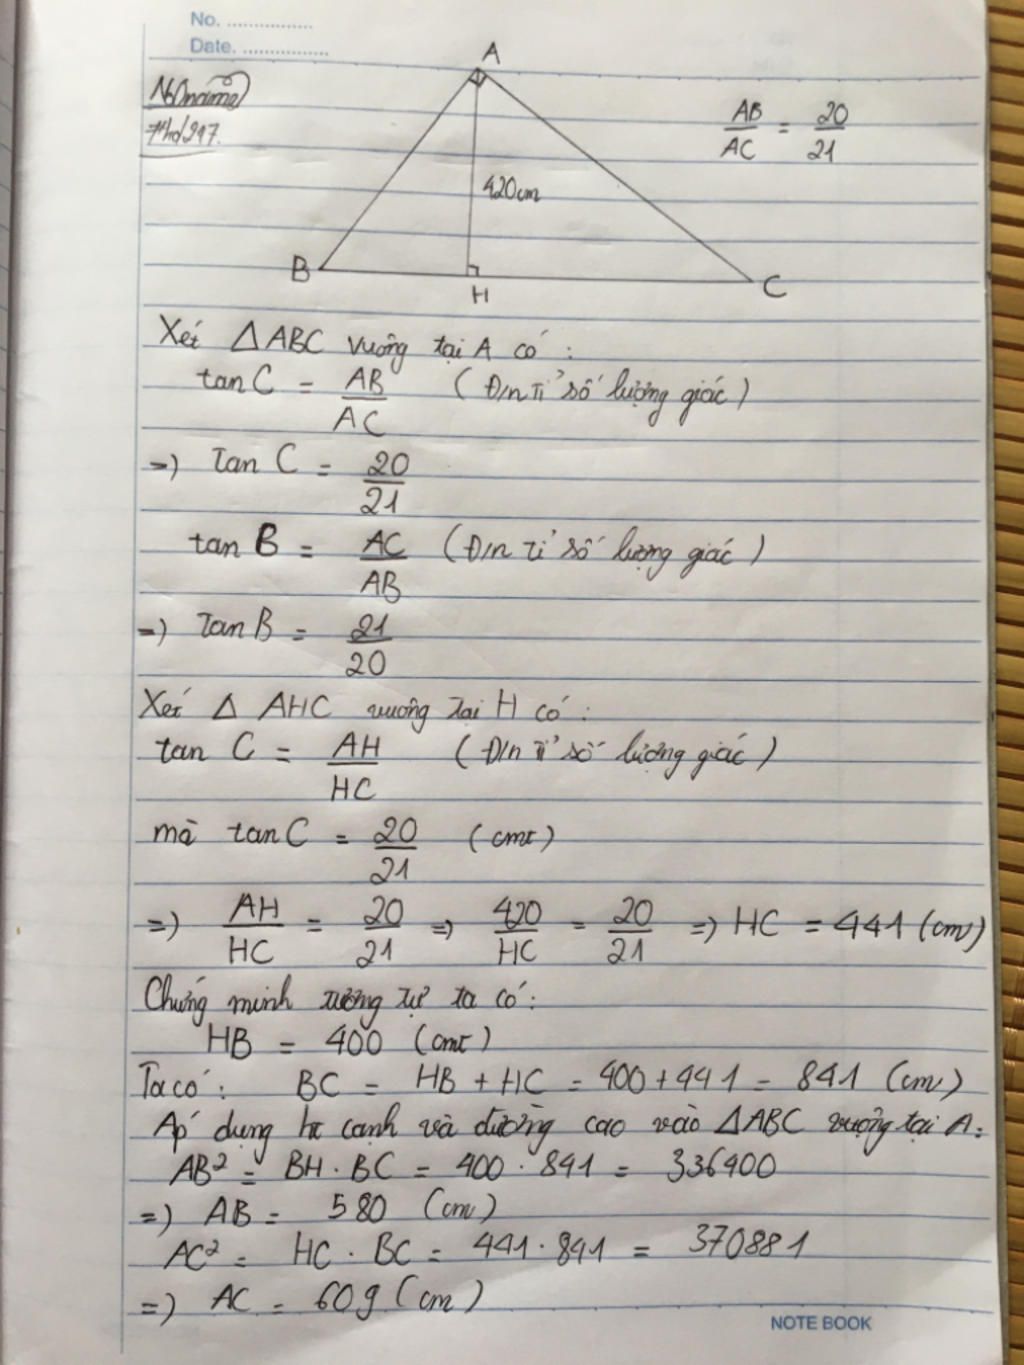 No. ................
Date. ................
A
AB/AC = 20/21
420cm
B
H
C
Xét △ABC vuông tại A có :
tan C = AB/AC (Đ/n Tỉ số lượng giác)
=) Tan C = 20/21
tan B = AC/AB (Đ/n tỉ số lượng giác)
=) Tan B = 21/20
Xét △ AHC vuông tại H có :
tan C = AH/HC (Đ/n tỉ số lượng giác)
mà tan C = 20/21 (cmt)
=) AH/HC = 20/21 => 420/HC = 20/21 =) HC = 441 (cm)
Chứng minh tương tự ta có :
HB = 400 (cm)
Ta có : BC = HB + HC = 400 + 441 = 841 (cm)
Áp dụng ht cạnh và đường cao vào △ABC vuông tại A :
AB² = BH . BC = 400 . 841 = 336400
=) AB = 580 (cm)
AC² = HC . BC = 441 . 841 = 370881
=) AC = 609 (cm)
NOTE BOOK